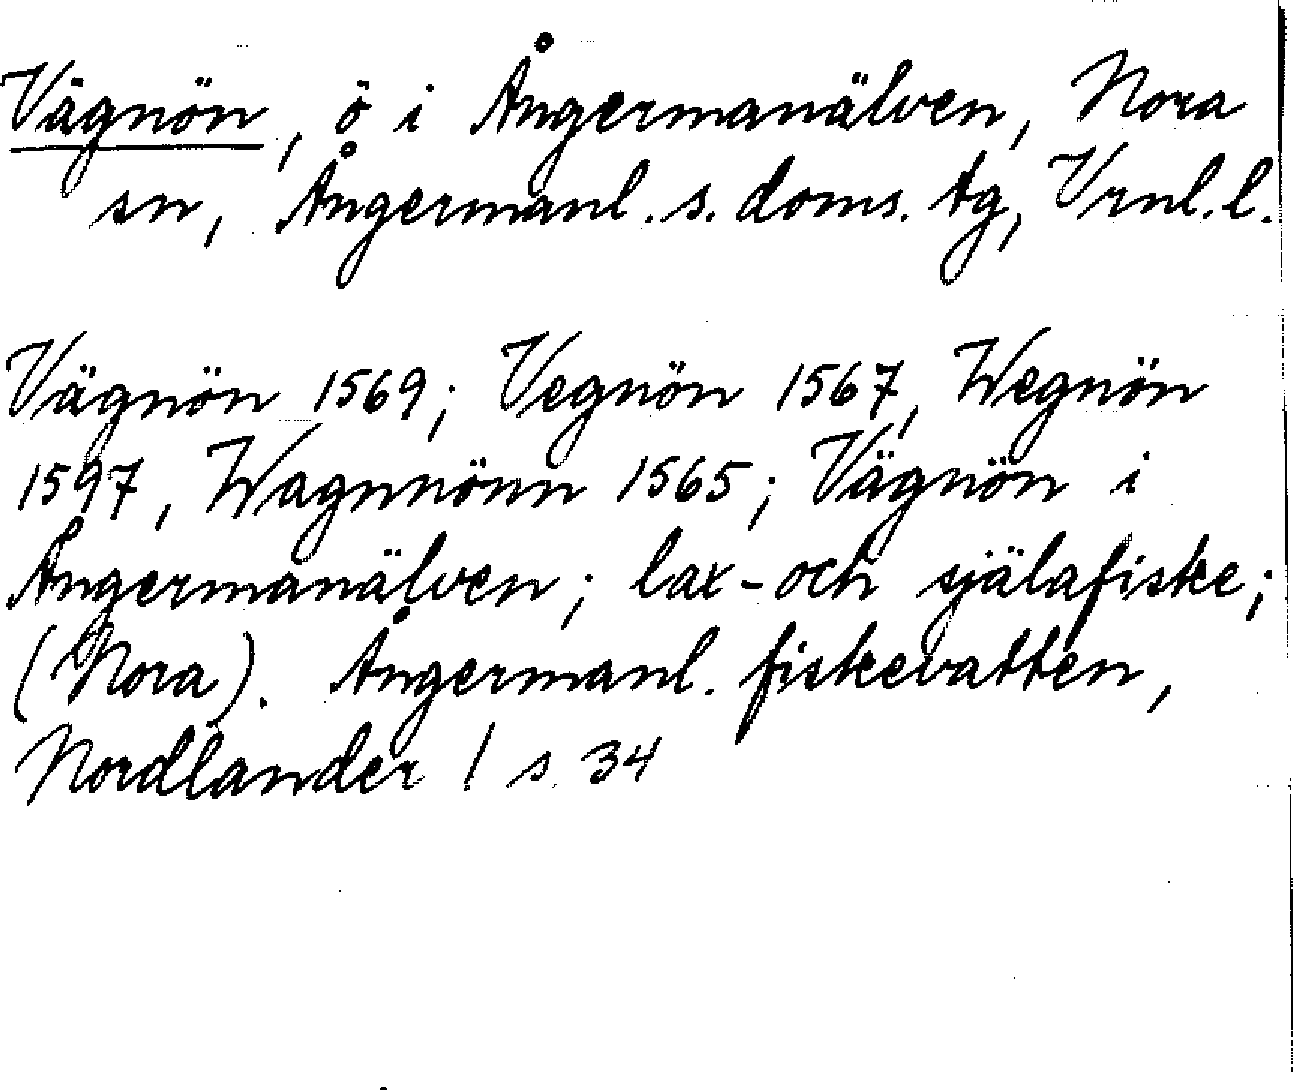 Vägnön, ö i Ångermanälven, Nora
sn, Ångermanl. s. doms. tg, Vrnl. l.
Vägnön 1569; Vegnön 1567, Wegnön
1597, Wagnnönn 1565; Vägnön i
Ångermanälven; lax- och själafiske;
(Nora). Ångermanl. fiskevatten,
Nordlander 1 s. 34